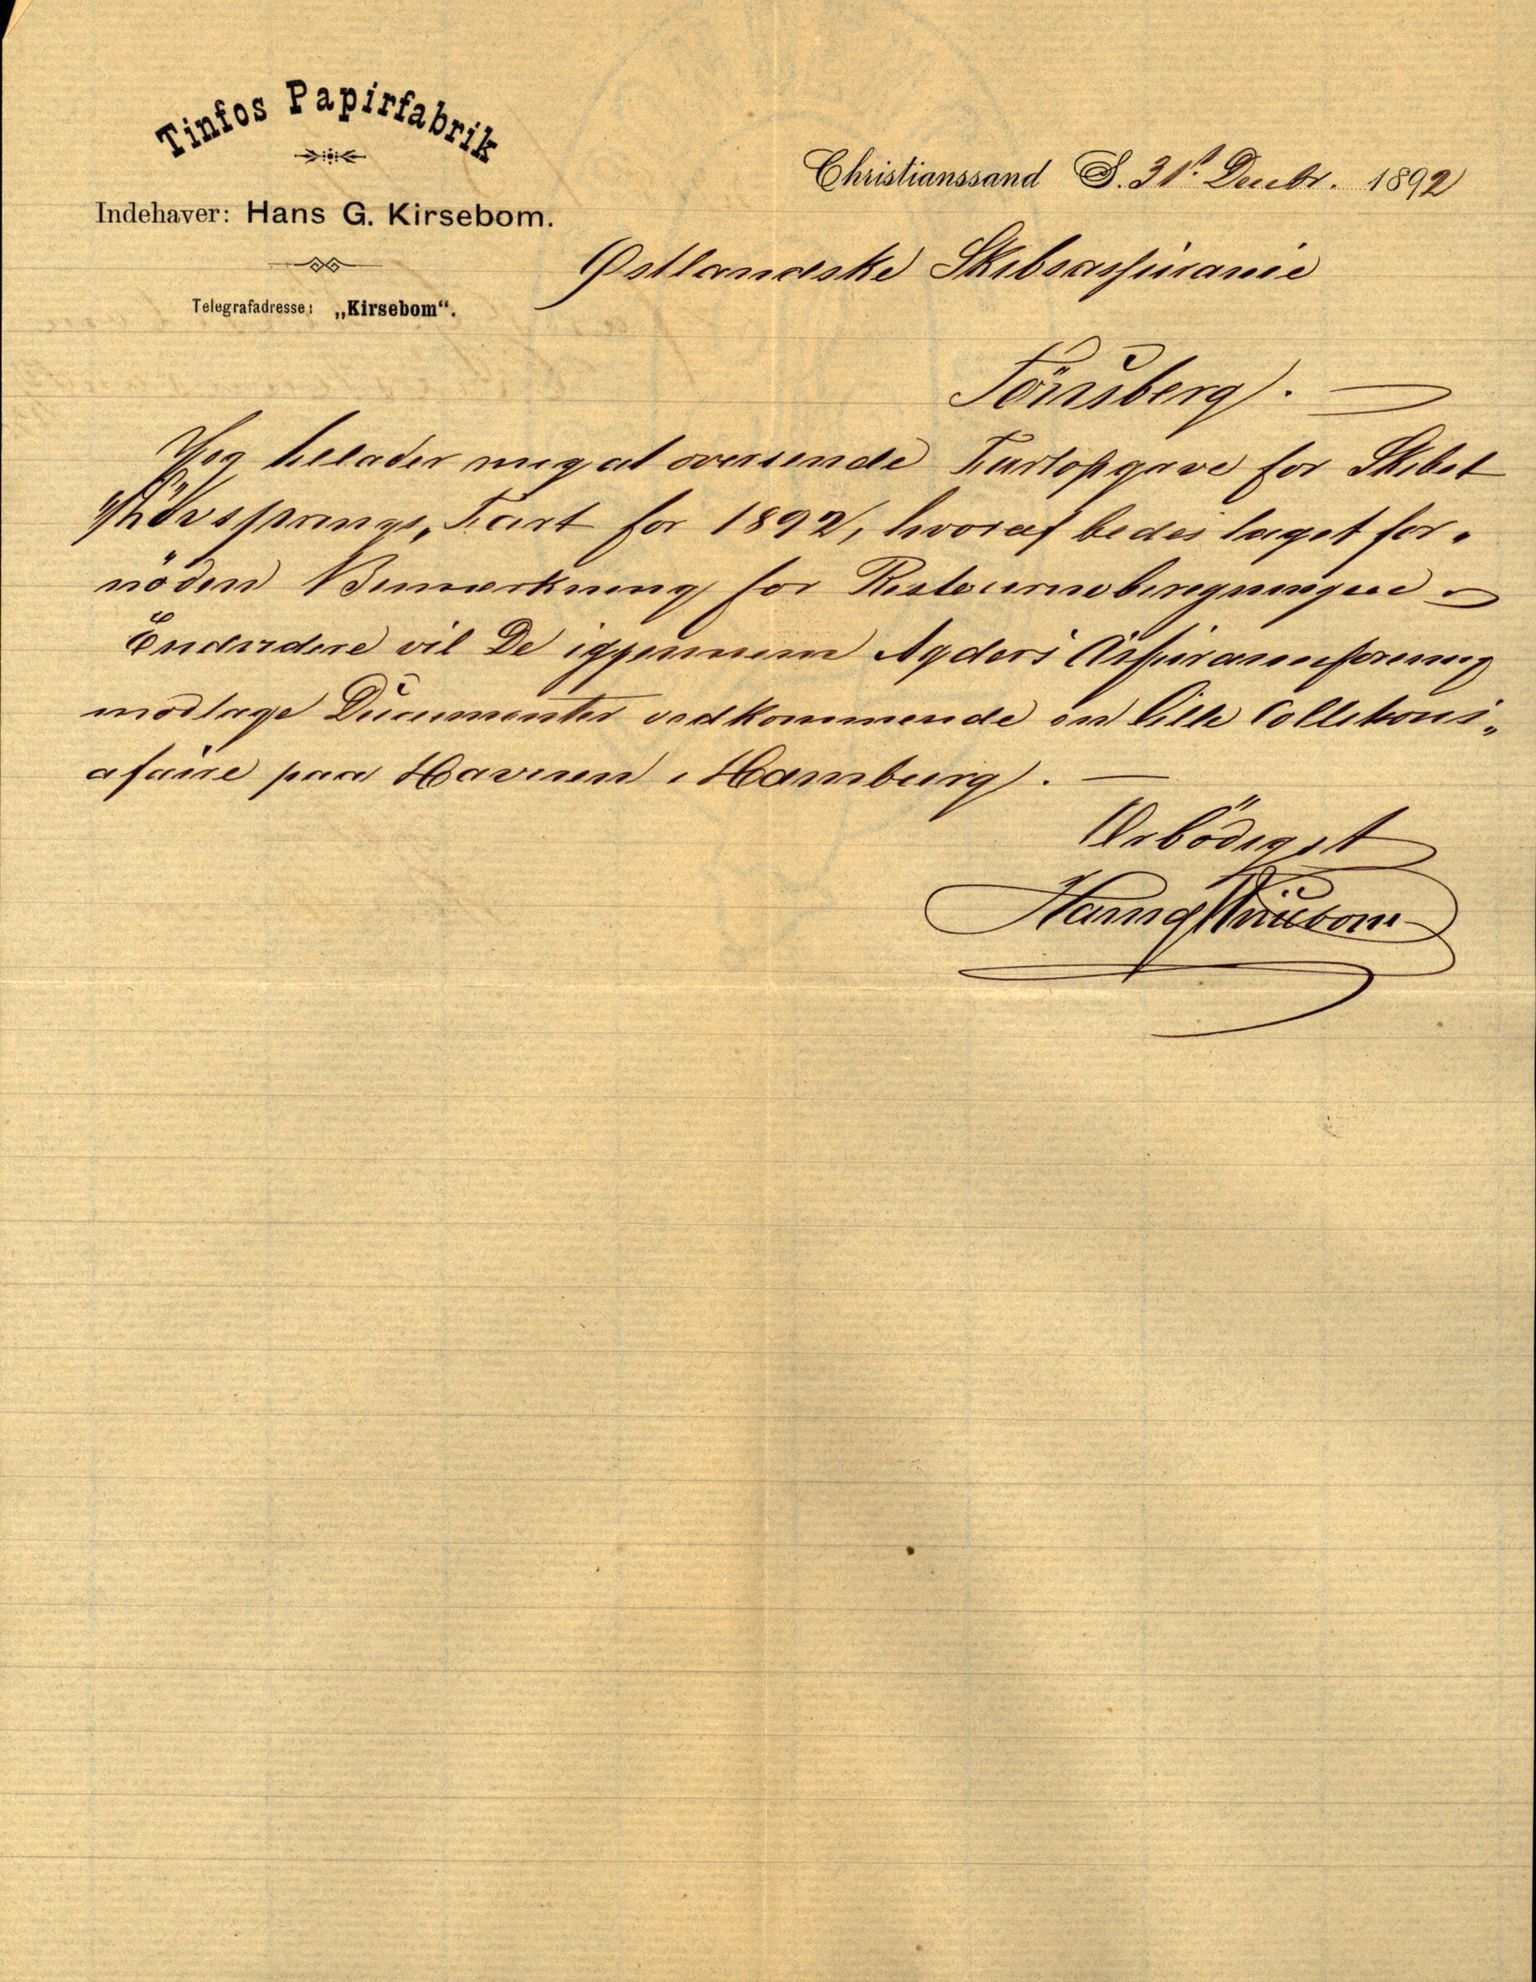 Tinfos Papirfabrik
Indehaver: Hans G. Kirsebom.
Telegrafadresse: „Kirsebom“.
Christianssand S. 31t Decbr. 1892
Østlandske Skibsassurance
Tönsberg.
Jeg tillader mig at oversende Fartopgave for Skibet
"Hövsprungs" Fart for 1892, hvoraf bedes taget for„
nöden Bemærkning for Ristourneberegningen
Endvidere vil De igjennem Agders Assuranceforening
modtage Documenter vedkommende en lille Collisions„
afaire paa Havnen i Hamburg.
Ærbödigst
Hans G Kirsebom